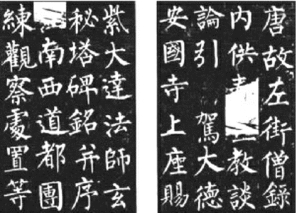 唐故左街僧錄
內供教談
論引駕大德
安國寺上座賜
紫大達法師玄
秘塔碑銘并序
南西道都團
練觀察處置等